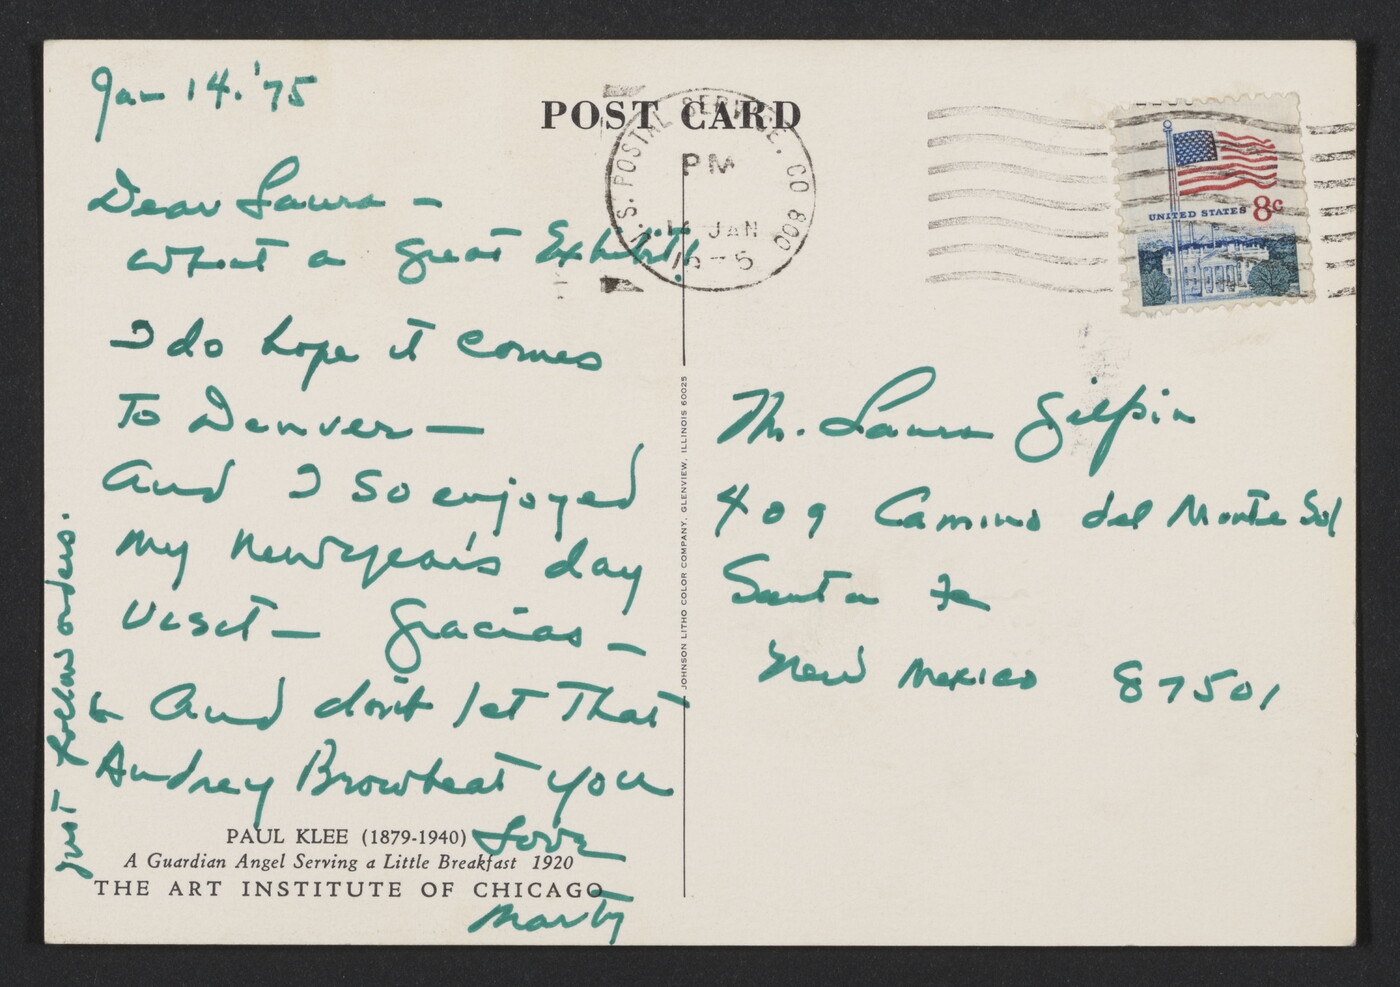 Jan 14. '75
POST CARD
U.S. POSTAL SERVICE, CO 800
PM
14 JAN
1975
UNITED STATES 8c
Dear Laura —
what a great Exhibit!
I do hope it comes
To Denver —
And I so enjoyed
my New Year's day
Visit — Gracias —
& And don't let That
Audrey Browbeat you
just follow orders.
Love
Marty
PAUL KLEE (1879-1940)
A Guardian Angel Serving a Little Breakfast 1920
THE ART INSTITUTE OF CHICAGO
JOHNSON LITHO COLOR COMPANY, GLENVIEW, ILLINOIS 60025
Laura Gilpin
409 Camino del Monte Sol
Santa Fe
New Mexico 87501